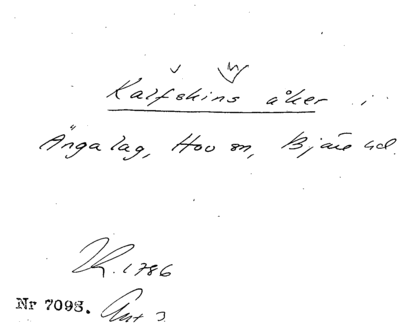 Kalfskins åker i
Ängalag, Hov sn, Bjäre hd.
K. 1786
Nr 7098.